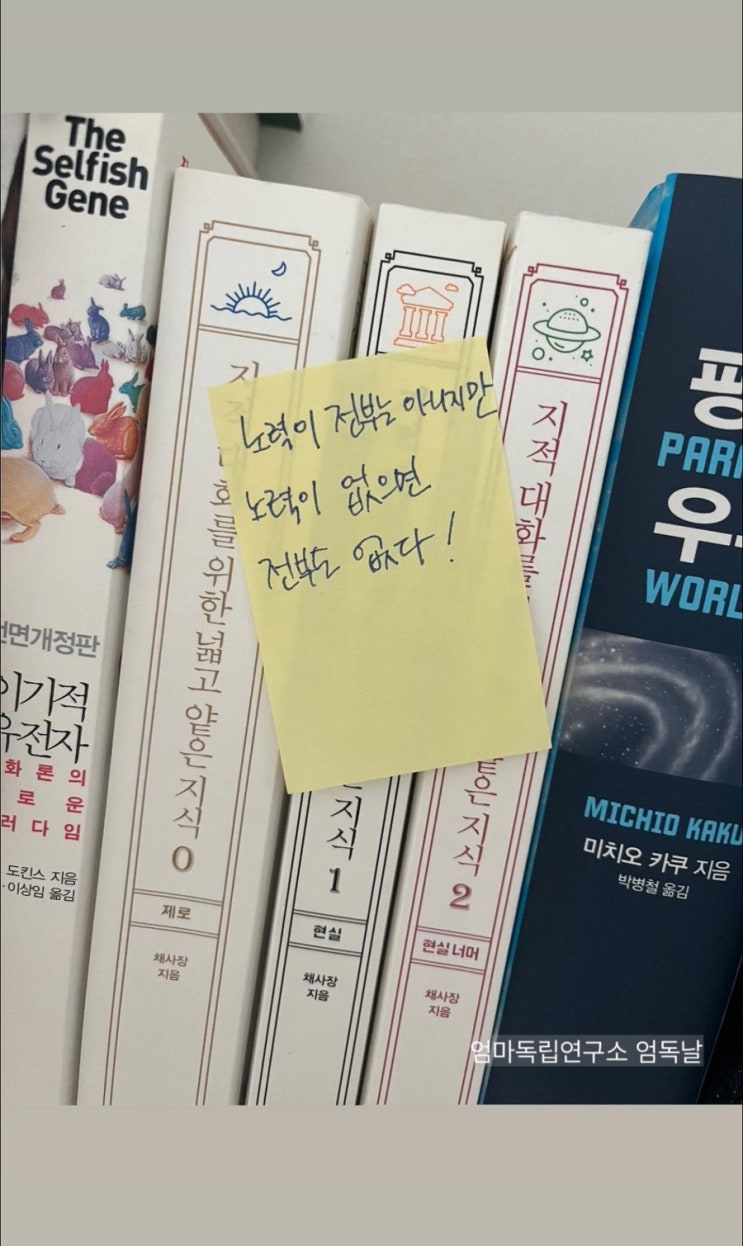 The
Selfish
Gene
전면개정판
이기적
유전자
화론의
로운
러다임
도킨스 지음
이상임 옮김
지적 대화를 위한 넓고 얕은 지식 0
제로
채사장
지음
노력이 전부는 아니지만
노력이 없으면
전부도 없다!
지식 1
현실
채사장
지음
지적 대화를
얕은 지식 2
현실 너머
채사장
지음
평
PAR
우
WORL
MICHIO KAKU
미치오 카쿠 지음
박병철 옮김
엄마독립연구소 엄독날